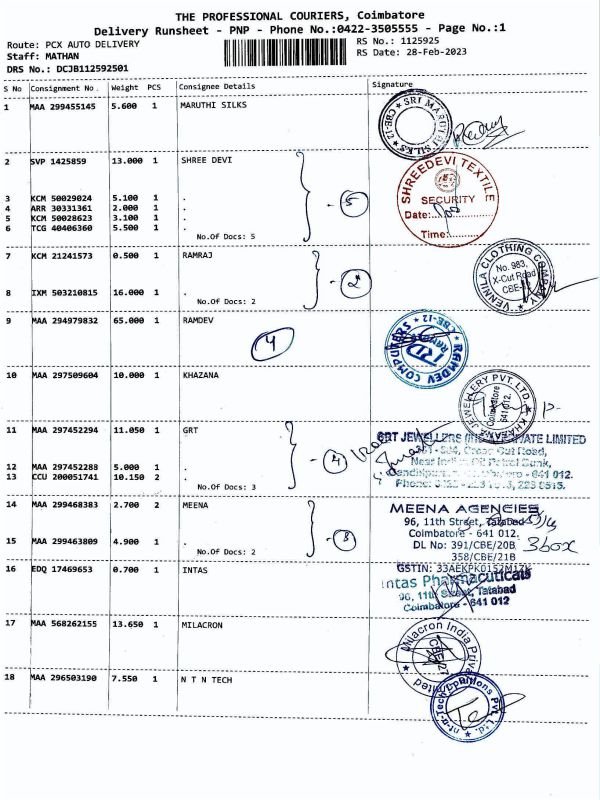 THE PROFESSIONAL COURIERS, Coimbatore
Delivery Runsheet - PNP - Phone No.:0422-3505555 - Page No.:1
Route: PCX AUTO DELIVERY RS No.: 1125925
Staff: MATHAN RS Date: 28-Feb-2023
DRS No.: DCJB112592501
S No Consignment No. Weight PCS Consignee Details Signature
1 MAA 299455145 5.600 1 MARUTHI SILKS
SRI MARUTHI SILKS CBE-12
2 SVP 1425859 13.000 1 SHREE DEVI
SHREEDEVI TEXTILE
SECURITY
Date:
Time:
3 KCM 50029024 5.100 1 .
4 ARR 30331361 2.000 1 .
5 KCM 50028623 3.100 1 .
6 TCG 40406360 5.500 1 .
No.Of Docs: 5
5
7 KCM 21241573 0.500 1 RAMRAJ
VENNILA CLOTHING COMPANY
No. 983,
X-Cut Road
CBE-12
8 IXM 503210815 16.000 1 .
No.Of Docs: 2
2
9 MAA 294979832 65.000 1 RAMDEV
4
RAMDEV COMPUTERS CBE-12
10 MAA 297509604 10.000 1 KHAZANA
KHAZANA JEWELLERY PVT. LTD.
Coimbatore
641 012.
11 MAA 297452294 11.050 1 GRT
GRT JEWELLERS PRIVATE LIMITED
Cross Cut Road,
Bank,
- 641 012.
Phone:
12 MAA 297452288 5.000 1 .
13 CCU 200051741 10.150 2 .
No.Of Docs: 3
4
14 MAA 299468383 2.700 2 MEENA
MEENA AGENCIES
96, 11th Street, Tatabad
Coimbatore - 641 012.
DL No: 391/CBE/20B
358/CBE/21B
3 box
15 MAA 299463809 4.900 1 .
No.Of Docs: 2
3
16 EDQ 17469653 0.700 1 INTAS
GSTIN:
Intas Pharmaceuticals
96, 11th Street, Tatabad
Coimbatore - 641 012
17 MAA 568262155 13.650 1 MILACRON
Milacron India Private Limited
CBE-27
18 MAA 296503190 7.550 1 N T N TECH